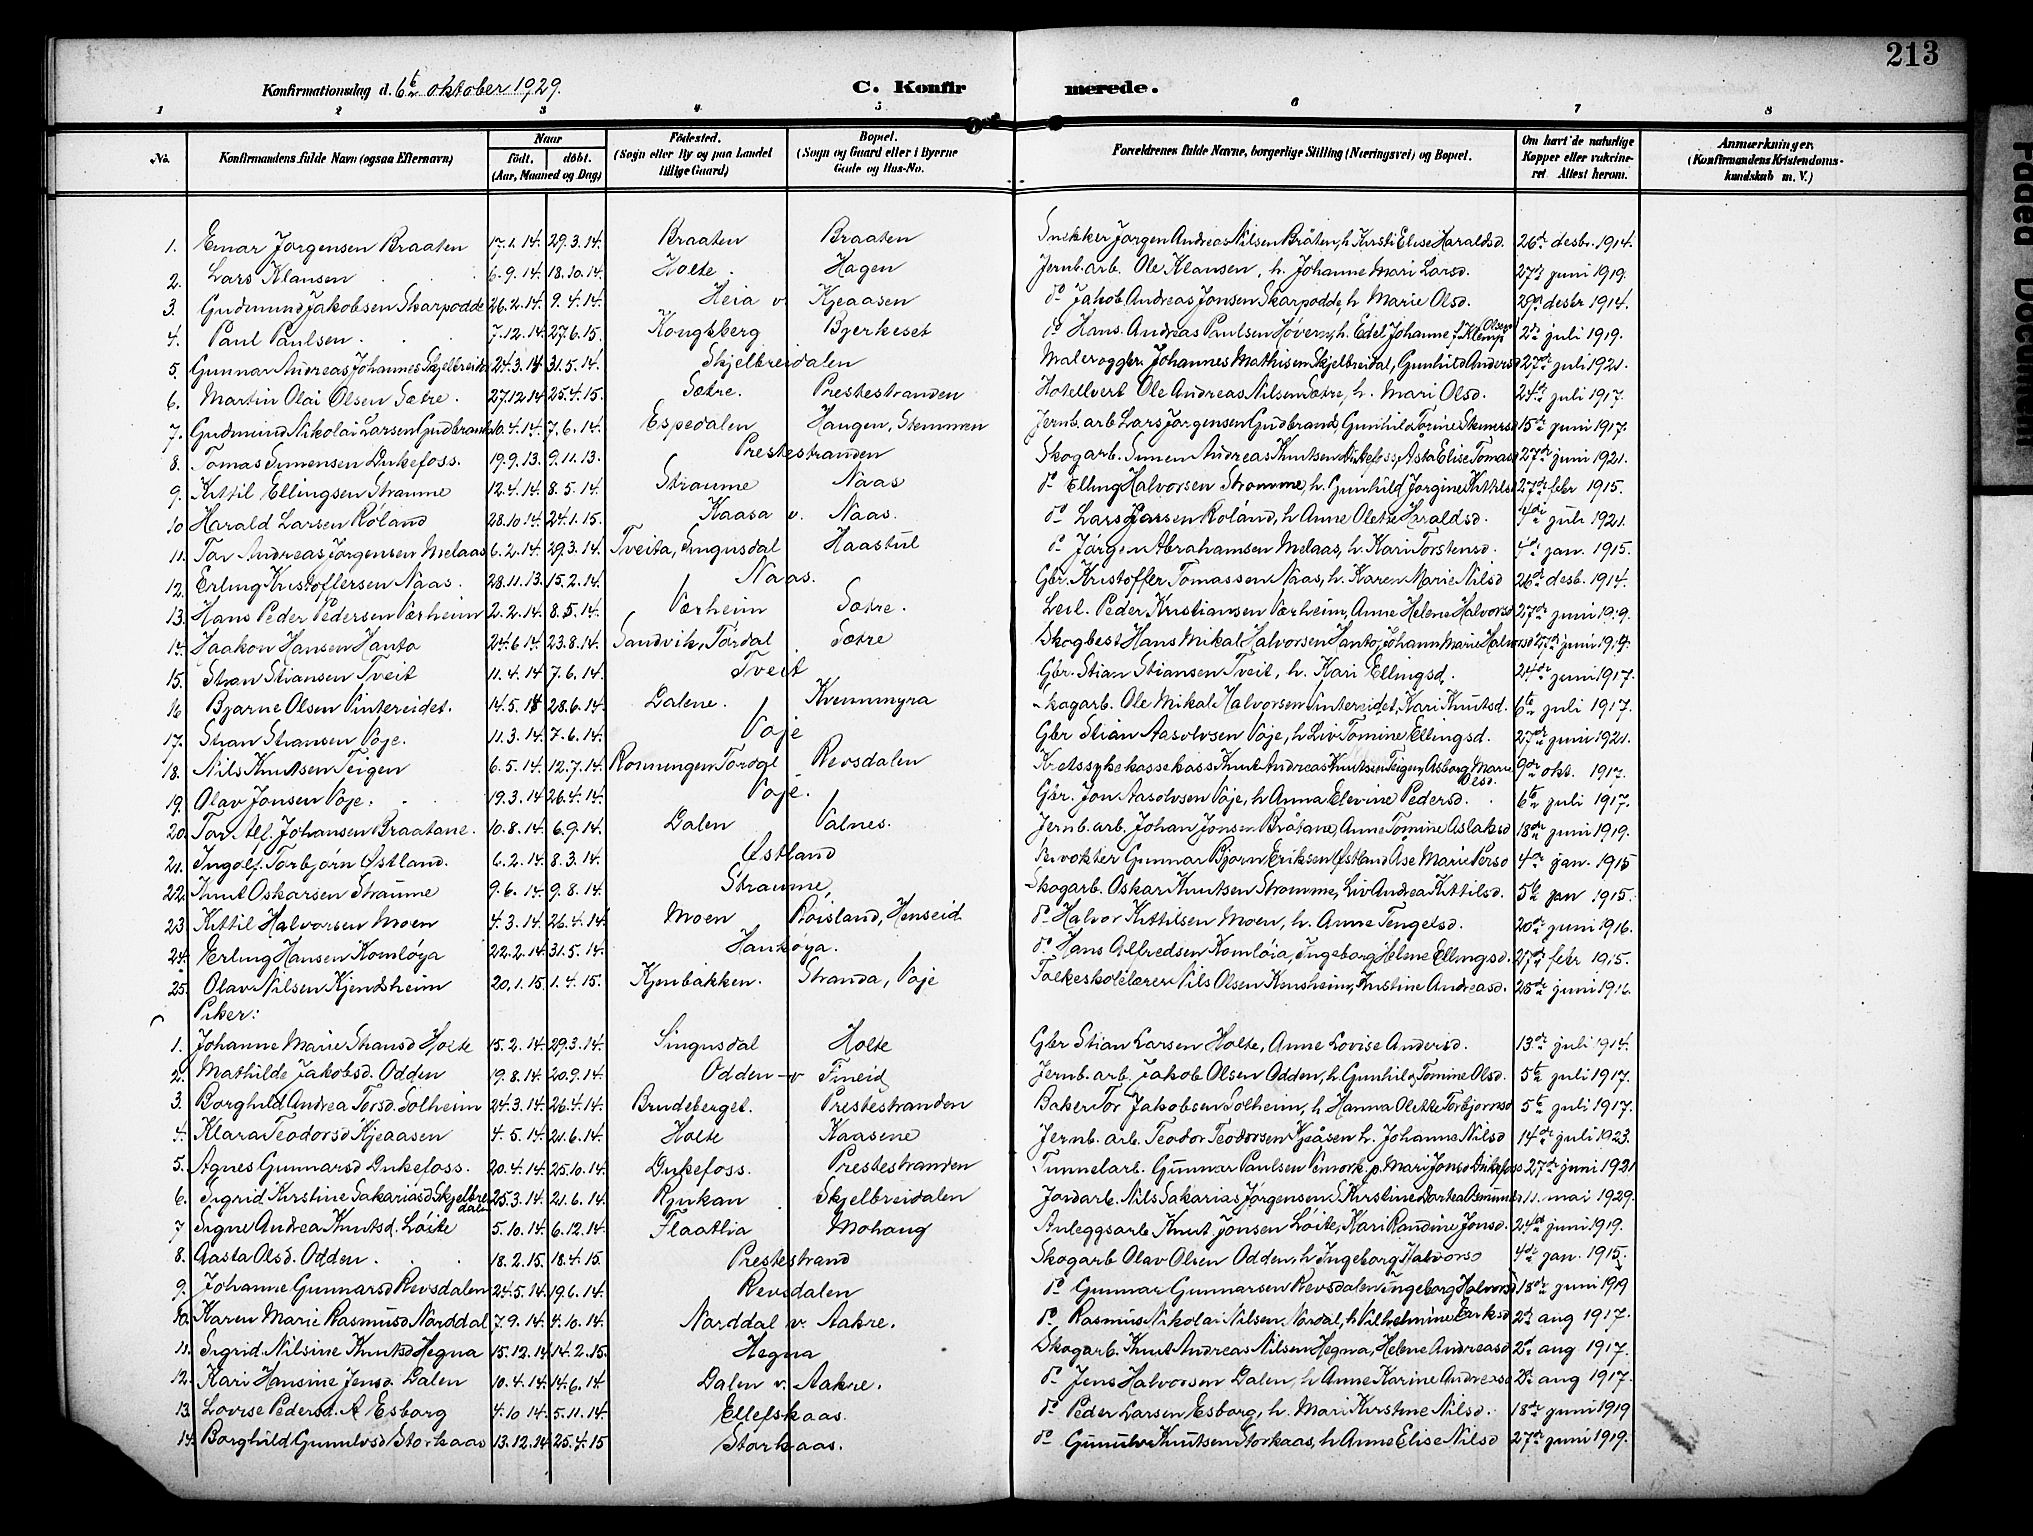 213
Konfirmationsdag d. 6te oktober 1929. C. Konfirmerede.
1 2 3 4 5 6 7 8
No. Konfirmandens fulde Navn (ogsaa Efternavn) Naar født. døbt. (Aar, Maaned og Dag) Fødested. (Sogn eller By og paa Landet tillige Gaard) Bopæl. (Sogn og Gaard eller i Byerne Gade og Hus-No. Forældrenes fulde Navne, borgerlige Stilling (Næringsvei) og Bopæl. Om havt de naturlige Kopper eller vakcineret Attest herom. Anmærkninger. (Konfirmandens Kristendomskundskab m. V.)
1. Einar Jørgensen Braaten 17.1.14. 29.3.14. Braaten Braaten Snekker Jørgen Andreas Nilsen Bråten, h. Kirsti Elise Haraldsd. 26de desbr. 1914.
2. Lars Klausen 6.9.14. 18.10.14. Holte. Hagen Jernb. arb. Ole Klausen, h. Johanne Mari Larsd. 27de juni 1919.
3. Gudmund Jakobsen Skarpodde 26.2.14. 9.4.14. Heia v. Kjeaasen do Jakob Andreas Jonsen Skarpodde, h. Marie Olsd. 29de desbr 1914.
4. Paul Paulsen. 7.12.14. 27.6.15. Kongsberg Bjerkeset do Hans Andreas Paulsen, h. Edel Johanne 2de juli 1919.
5. Gunnar Andreas Johannes Skjelbreida 24.3.14 31.5.14. Skjelbreidalen Johannes Mathisen Skjelbreidal, Gunhild Andersd 27de juli 1921.
6. Martin Olai Olsen Sætre. 27.12.14 25.4.15. Sætre. Prestestranden Hotellvert Ole Andreas Nilsen Sætre, h. Mari Olsd. 24de juli 1917.
7. Gudmund Nikolai Larsen Gudbrands 10.4.14. 7.6.14. Espedalen Haugen, Stemmen Jernb. arb Lars Jørgensen Gudbrand, Gunhild Torine 15de juni 1917.
8. Tomas Simensen Dukefoss. 19.9.13. 9.11.13. Prestestranden Skogarb. Simen Andreas Knutsen Dukefoss, Åsta Elise Tomasd 27de juni 1921.
9. Kittil Ellingsen Straume 12.4.14. 8.5.14. Straume Naas do Elling Halvorsen Strømme, h. Gunhild Jørgine Kittilsd 27de febr 1915.
10 Harald Larsen Røland 28.10.14. 24.1.15. Kaasa v. Naas. do Lars Larsen Roland, h Anne Olette Haraldsd. 4de juli 1921.
11. Tor Andreas Jørgensen Melaas 6.2.14. 29.3.14. Tveita, Singusdal Haastul do Jørgen Abrahamsen Melaas, h. Kari Torstensd. 4de jan. 1915.
12. Erling Kristoffersen Naas. 28.11.13. 15.2.14. Naas. Gbr. Kristoffer Tomassen Naas, h. Karen Marie Nilsd 26de desb. 1914.
13. Hans Peder Pedersen Værheim 2.2.14. 8.5.14. Værheim Sætre. Leil. Peder Kristiansen Værheim, Anne Helene Halvorsd 27de juni 1919.
14. Haakon Hansen Hanto 24.6.14. 23.8.14. Sandvik, Tørdal Sætre Skogbest Hans Mikal Halvorsen Hanto, Johann Marie Halvorsd 27de juni 1919.
15. Stian Stiansen Tveit 11.4.14 7.6.14. Tveit Gbr. Stian Stiansen Tveit, h. Kari Ellingsd. 24de juni 1917.
16 Bjarne Olsen Vintereidet. 14.5.14 28.6.14. Dalene. Kvennmyra Skogarb. Ole Mikal Halvorsen Vintereidet, Kari Knutsd. 6te juli 1917.
17. Stian Stiansen Voje. 11.3.14. 7.6.14. Voje Gbr Stian Aasolvsen Voje, h Liv Tomine Ellingsd. 27de juni 1921.
18. Nils Knutsen Teigen 6.5.14. 12.7.14. Ronningen Tørdal Revsdalen Kretssykekassekass Knut Andreas Knutsen Teigen, Asborg Marie Olsd. 9de okt. 1917.
19. Olav Jonsen Voje. 19.3.14 26.4.14. Voje. Gbr. Jon Aasolvsen Voje, h Anna Elevine Pedersd. 6te juli 1917.
20. Tor Alf. Johansen Braatane. 10.8.14. 6.9.14. Dalen Valnes. Jernb. arb. Johan Jonsen Bråtane, Anne Tomine Aslaksd 18de juni 1919.
21. Ingolf Torbjørn Østland. 6.2.14. 8.3.14. Østland Gunnar Bjørn Eriksen Østland Ase Marie Persd 4de jan. 1915
22. Knut Oskarsen Straume 9.6.14. 9.8.14. Straume, Skogarb. Oskar Knutsen Strømme, Liv Andrea Kittilsd. 5te jan 1915.
23. Kittil Halvorsen Moen 4.3.14. 26.4.14. Moen Røisland, Henseid. do Halvor Kittilsen Moen, h. Anne Tengelsd. 20de juni 1916.
24. Erling Hansen Komløya 22.2.14. 31.5.14. do Hans Alfredsen Komløia, Ingeborg Helene Ellingsd. 27de febr 1915.
25. Olav Nilsen Kjendsheim 20.1.15. 1.4.15. Kjenbakken. Stranda, Voje Folkeskolelærer Nils Olsen Kensheim, Kristine Andreasd. 25de juni 1916.
Piker:
1. Johanne Marie Stiansd Holte 15.2.14. 29.3.14. Singusdal Holte Gbr Stian Larsen Holte, Anne Lovise Andersd. 13de juli 1914.
2. Mathilde Jakobsd. Odden 19.8.14. 20.9.14. Odden v Fineid Jernb. arb. Jakob Olsen Odden, h. Gunhild Tomine Olsd. 5te juli 1917.
3. Borghild Andrea Torsd. Solheim 24.3.14. 26.4.14. Brudeberget. Prestestranden Baker Tor Jakobsen Solheim, h Hanna Olette Torbjørnsd 5te juli 1917.
4. Klara Teodorsd Kjeaasen 4.5.14. 21.6.14. Holte Kaasene Jernb. arb. Teodor Teodorsen Kjeåsen h. Johanne Nilsd 14de juli 1923.
5. Agnes Gunnarsd Dukefoss. 20.4.14. 25.10.14. Dukefoss. Prestestranden Tunnelarb. Gunnar Paulsen Vemork. p. Mari Jonsd Dukefoss 27de juni 1921
6. Sigrid Kirstine Sakariasd Skjelbreidalen 25.3.14. 21.6.14. Rjukan Skjelbreidalen Jordarb. Nils Sakarias Jørgensen S Kirstine Dortea 11. mai 1929.
7 Signe Andrea Knutsd. Løite 5.10.14. 6.12.14. Flaatlia Mohaug Anleggsarb. Knut Jonsen Løite, Kari Randine Jonsd. 24de juni 1919.
8. Aasta Olsd. Odden. 18.2.15. 18.4.15. Prestestrand Skogarb Olav Olsen Odden, h. Ingeborg Halvorsd 4de jan. 1915.
9. Johanne Gunnarsd Revsdalen 24.5.14. 19.6.14. Revsdalen do Gunnar Gunnarsen Revsdalen Ingeborg Halvorsd 18de juni 1919
10. Karen Marie Rasmusd Norddal 7.9.14. 4.10.14. Norddal v. Aakre. do Rasmus Nikolai Nilsen Nordal, h Vilhelmine Eriksd 2de aug 1917.
11. Sigrid Nilsine Knutsd Hegna 15.12.14 14.2.15. Hegna Skogarb. Knut Andreas Nilsen Hegna, Helene Andreasd 2de aug 1917.
12. Kari Hansine Jensd. Dalen 10.4.14. 14.6.14. Dalen v. Aakre. do Jens Halvorsen Dalen, h Anne Karine Andreasd 2de aug 1917.
13. Lovise Pedersd. Esborg 4.10.14. 5.11.14. Ellefskaas. do Peder Larsen Esborg, h. Mari Kirstine Nilsd. 18de juni 1919
14. Borghild Gunulvsd Storkaas 13.12.14 25.4.15 Storkaas. do Gunulv Knutsen Storkaas, h Anne Elise Nilsd 27de juni 1919.